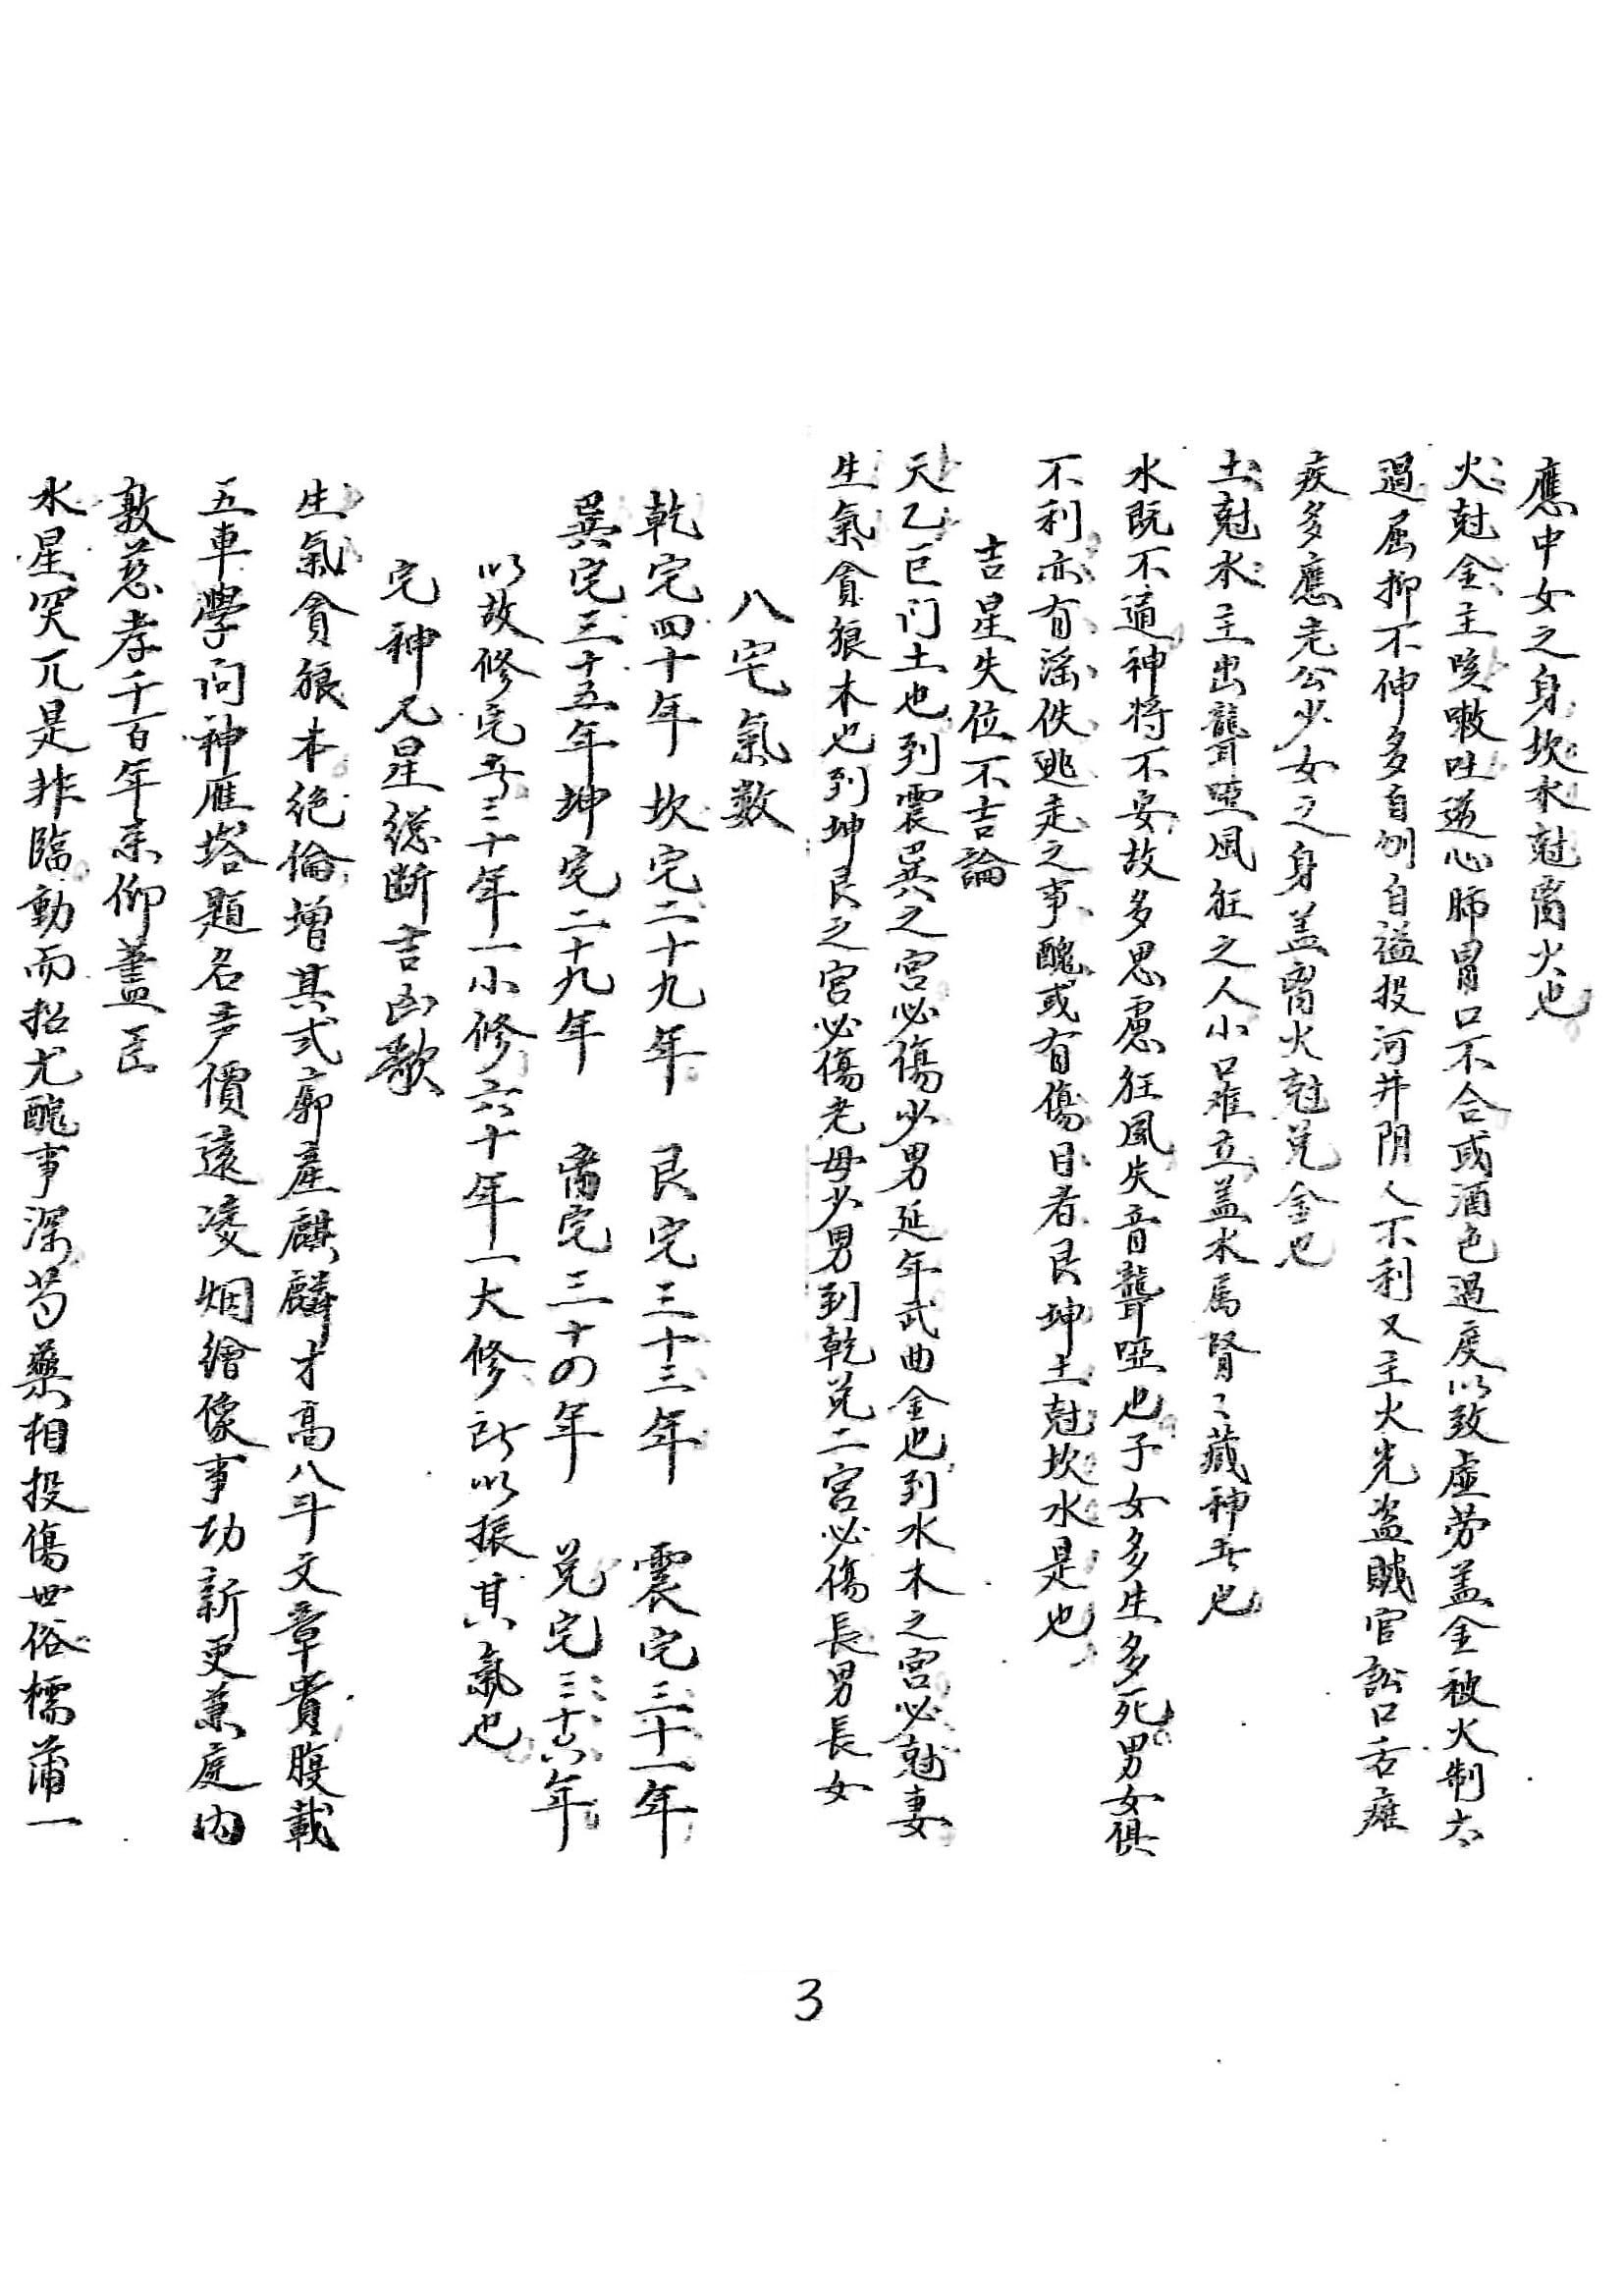 應中女之身坎水尅离火也
火尅金主咳嗽吐逆心肺胃口不合或酒色過度以致虛劳盖金被火制太
過屈抑不伸多自刎自縊投河井阴人不利又主火光盗賊官訟口舌瘫
疾多應老公少女之身盖离火尅兑金也
土尅水主出聾啞風狂之人小口难立盖水属腎〻藏神者也
水既不通神將不安故多思慮狂風失音聾啞也子女多生多死男女俱
不利亦有滛佚逃走之事醜或有傷目者艮坤土尅坎水是也
吉星失位不吉論
天乙巨门土也到震巽之宮必傷少男延年武曲金也到水木之宮必尅妻
生氣貪狼木也到坤艮之宮必傷老母少男到乾兑二宮必傷長男長女
八宅氣数
乾宅四十年 坎宅二十九年 艮宅三十三年 震宅三十一年
巽宅三十五年坤宅二十九年 离宅三十四年 兑宅三十六年
以故修宅者三十年一小修六十年一大修所以振其氣也
宅神凡星總断吉凶歌
生氣貪狼本絶倫增其式廓產麒麟才高八斗文章貴腹載
五車學问神雁塔題名声價遠凌烟繪像事功新更兼庭内
敦慈孝千百年来仰蓋臣
水星哭兀是非臨動而招尤醜事深芍藥相投傷世俗樗蒲一
3